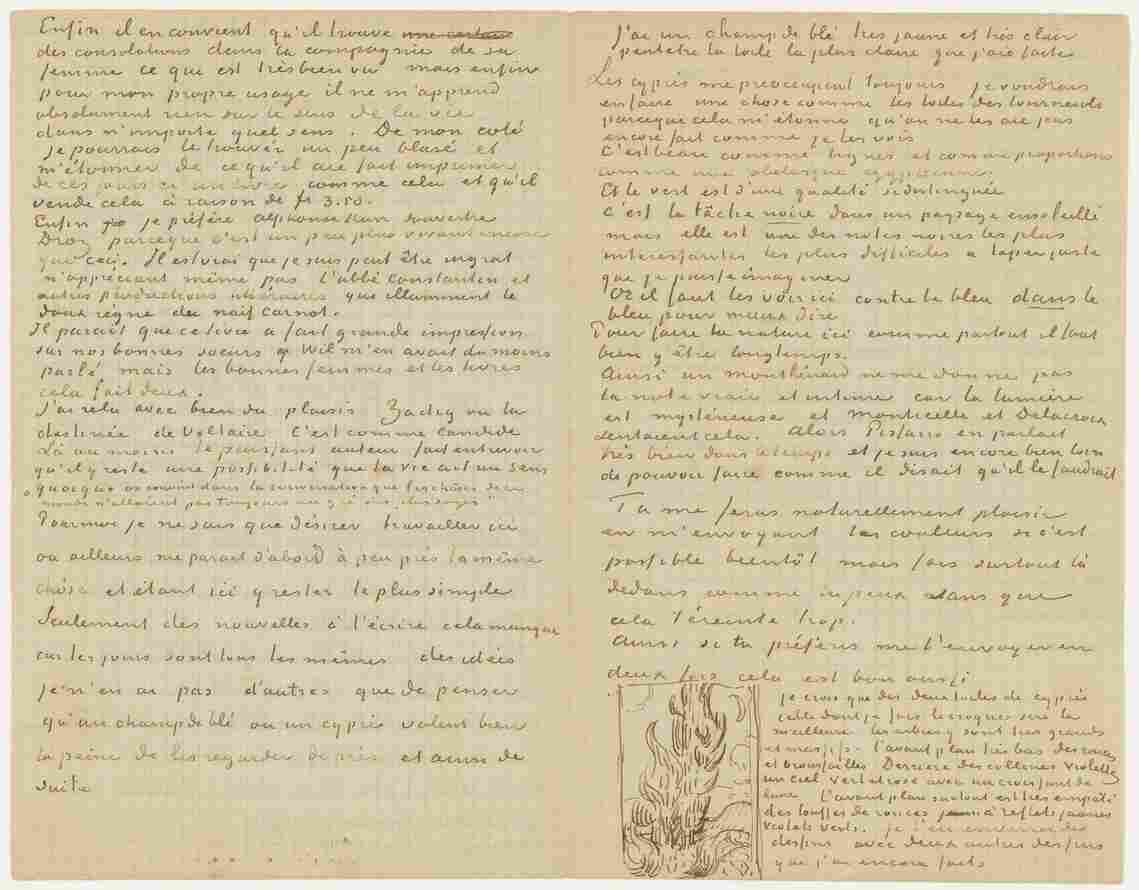 Enfin il en convient qu'il trouve une certaine
des consolations dans la compagnie de sa
femme ce que est très bien vu mais enfin
pour mon propre usage il ne m'apprend
absolument rien sur le sens de la vie
dans n'importe quel sens. De mon coté
je pourrais le trouver un peu blasé et
m'étonner de ce qu'il aie fait imprimer
de ces jours ci un livre comme cela et qu'il
vende cela à raison de fr 3.50.
Enfin je préfère alphonse Karr souvestre
Droz parceque c'est un peu plus vivant encore
que ceci. Il est vrai que je suis peut être ingrat
n'appréciant même pas l'abbé Constantin et
autres productions litéraires que illumment le
doux règne du naif Carnot.
Il parait que ce livre a fait grande impression
sur nos bonnes soeurs Wil m'en avait du moins
parlé mais les bonnes femmes et les livres
cela fait deux.
J'ai relu avec bien du plaisir Zadig ou la
destinée de Voltaire C'est comme candide
Là au moins le puissant auteur fait entrevoir
qu'il y reste une possibilité que la vie ait un sens
"quoique on convînt dans la conversation que les choses de ce
monde n'allaient pas toujours au gré des plus sages"
Pour moi je ne sais que désirer travailler ici
ou ailleurs me parait d'abord à peu près la même
chose et étant ici y rester le plus simple
Seulement des nouvelles à t'écrire cela manque
car les jours sont tous les mêmes des idées
je n'en ai pas d'autres que de penser
qu'un champ de blé ou un cyprès valent bien
la peine de les regarder de près et ainsi de
suite
J'ai un champ de blé très jaune et très clair
peutetre la toile la plus claire que j'aie faite
Les cyprès me preoccupent toujours je voudrais
en faire une chose comme les toiles des tournesols
parceque cela m'étonne qu'on ne les aie pas
encore fait comme je les vois
C'est beau comme lignes et comme proportions
comme une obelisque egyptienne.
Et le vert est d'une qualité si distinguée
C'est la tâche noire dans un paysage ensoleillé
mais elle est une des notes noires les plus
interessantes les plus difficiles à taper juste
que je puisse imaginer
Or il faut les voir ici contre le bleu dans le
bleu pour mieux dire
Pour faire la nature ici comme partout il faut
bien y être longtemps.
Ainsi un monthénard ne me donne pas
la note vraie et intime car la lumière
est mystérieuse et Monticelli et Delacroix
sentaient cela. Alors Pissarro en parlait
très bien dans le temps et je suis encore bien loin
de pouvoir faire comme il disait qu'il le faudrait
Tu me feras naturellement plaisir
en m'envoyant les couleurs si c'est
possible bientôt mais fais surtout là
dedans comme tu peux sans que
cela t'éreinte trop.
Ainsi si tu préfères me l'envoyer en
deux fois cela est bon aussi
je crois que des deux toiles de cyprès
celle dont je fais le croquis sera la
meilleure les arbres y sont très grands
et massifs. l'avant plan très bas des ronces
et broussailles Derrière des collines violettes
un ciel vert et rose avec un croissant de
lune L'avant plan surtout est très empâté
des touffes de ronces à reflets jaunes
violets verts. je t'en enverrai des
dessins avec deux autres dessins
que j'ai encore faits